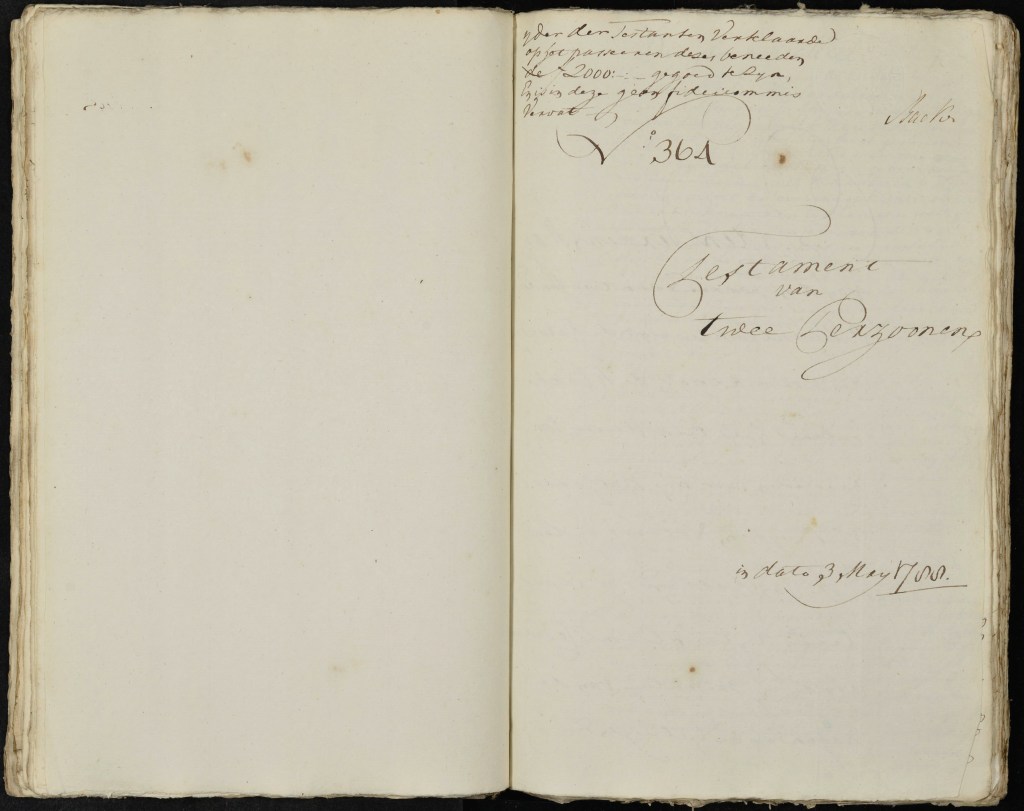 yder der Testanten Verklaarde
op het passeeren deses beneeden
de ƒ 2000:-:- gegoed te zyn,
En is in deze geen fideicommis
Vervat
No 364
Testament
van
twee Perzoonen
in dato 3 May 1788.